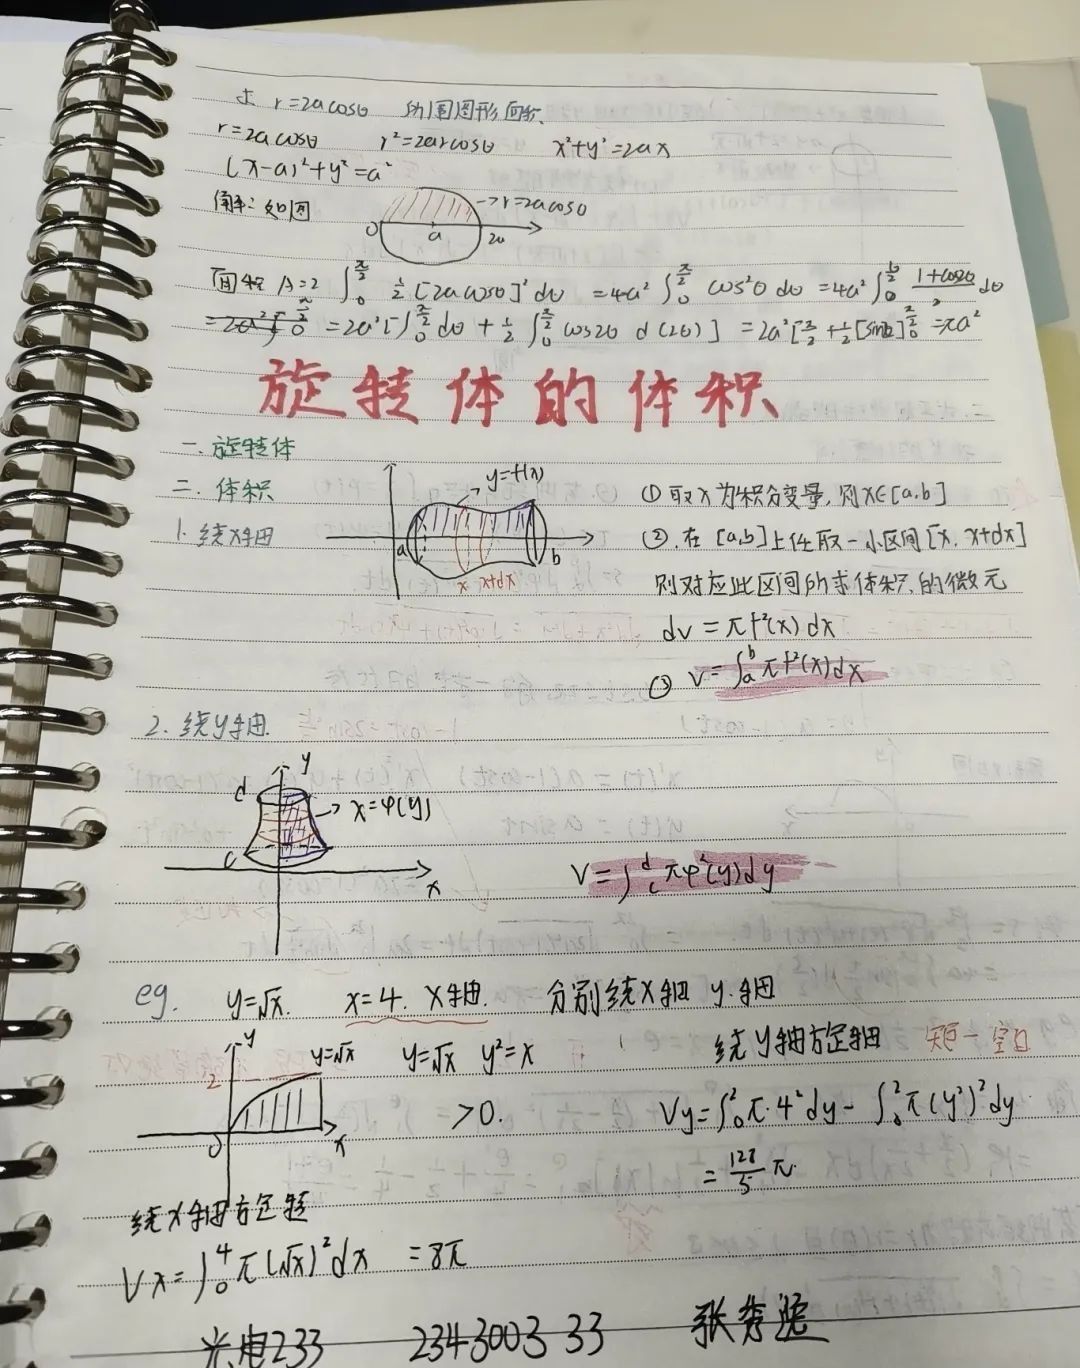 求 r=2acosθ 所围图形面积.
r=2acosθ r²=2arcosθ x²+y²=2ax
(x-a)²+y²=a²
解: 如图
r=2acosθ
0 a 2a
面积 A=2∫₀^(π/2) ½[2acosθ]²dθ =4a²∫₀^(π/2) cos²θ dθ =4a²∫₀^(π/2) (1+cos2θ)/2 dθ
=2a²[∫₀^(π/2) dθ + ½∫₀^(π/2) cos2θ d(2θ)] =2a²[π/2 + ½[sin2θ]₀^(π/2) =πa²
旋转体的体积
一. 旋转体
二. 体积
1. 绕x轴
y=f(x)
a x x+dx b
① 取x为积分变量, 则x∈[a,b]
②. 在[a,b]上任取一小区间[x, x+dx]
则对应此区间所求体积的微元
dv=πf²(x)dx
③ V=∫ₐᵇπf²(x)dx
2. 绕y轴.
y
d
x=φ(y)
c
x
V=∫_c^d πφ²(y)dy
eg. y=√x. x=4. x轴. 分别绕x轴 y轴
y
2
y=√x
0 x
y=√x y²=x
>0.
绕y轴旋转 矩-空白
Vy=∫₀²π·4²dy-∫₀²π(y²)²dy
=128/5 π.
绕x轴旋转
Vx=∫₀⁴π(√x)²dx =8π
光电233 2343003 33 张秀